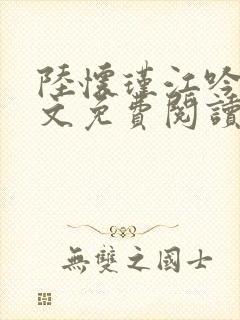 陸懷瑾江吟
文免費閱讀
無雙之國士